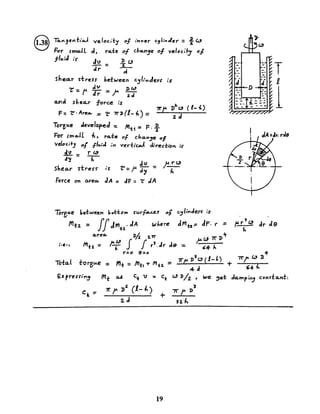 1.38
Tangential velocity of inner cylinder = D/2 ω
For small d, rate of change of velocity of
fluid is dv/dr = D/2 ω / d
Shear stress between cylinders is
τ = μ dv/dr = μ Dω/2d
and shear force is
F = τ·Area = τ π D (l-h) = π μ D² ω (l-h) / 2d
Torque developed = Mt1 = F · D/2
For small h, rate of change of
velocity of fluid in vertical direction is
dv/dy = r ω / h
Shear stress is τ = μ dv/dy = μ r ω / h
Force on area dA = dF = τ dA
D
l
h
dA = dr. r dθ
Torque between bottom surfaces of cylinders is
Mt2 = ∬ dMt2 · dA where dMt2 = dF · r = μ r³ ω / h dr dθ
area
i.e., Mt2 = μω/h ∫ r=0 D/2 ∫ θ=0 2π r³ dr dθ = μ ω π D⁴ / 64 h
Total torque = Mt = Mt1 + Mt2 = π μ D³ ω (l-h) / 4 d + π μ ω D⁴ / 64 h
Expressing Mt as Ct v = Ct ω D/2, we get damping constant:
Ct = π μ D² (l-h) / 2 d + π μ D³ / 32 h
19